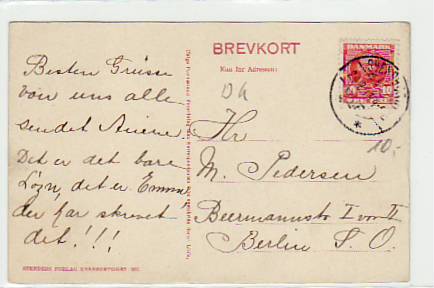 BREVKORT
Kun for Adressen
DANMARK
10
DK
10,-
Besten Grüsse
von uns alle
sendet
Det er det bare
Løgn, det er Emma
der far skrevet
det!!!
Hr
M. Pedersen
Beermannstr I von II
Berlin S. O.
STENDERS FORLAG